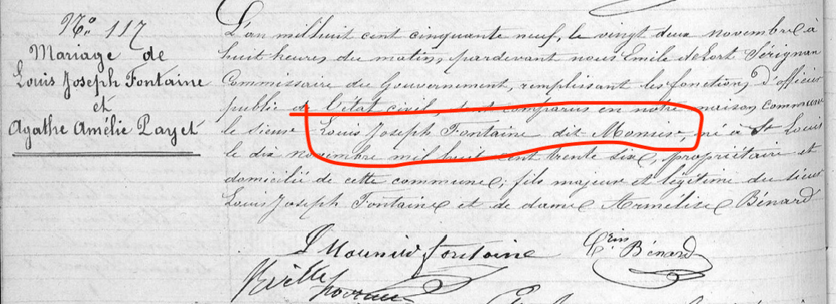 N.º 117
Mariage de
Louis Joseph Fontaine
et
Agathe Amélie Payet
L'an mil huit cent cinquante neuf, le vingt deux novembre à
huit heures du matin, pardevant nous Emile de Fort Sérignan
Commissaire du Gouvernement, remplissant les fonctions d'officier
public de l'état civil, sont comparus en notre maison commune
le sieur Louis Joseph Fontaine dit, né à St Louis
le dix novembre mil huit cent trente six, propriétaire et
domicilié de cette commune; fils majeur et légitime du sieur
Louis Joseph Fontaine et de dame Armélise Bénard
Fontaine
Bénard